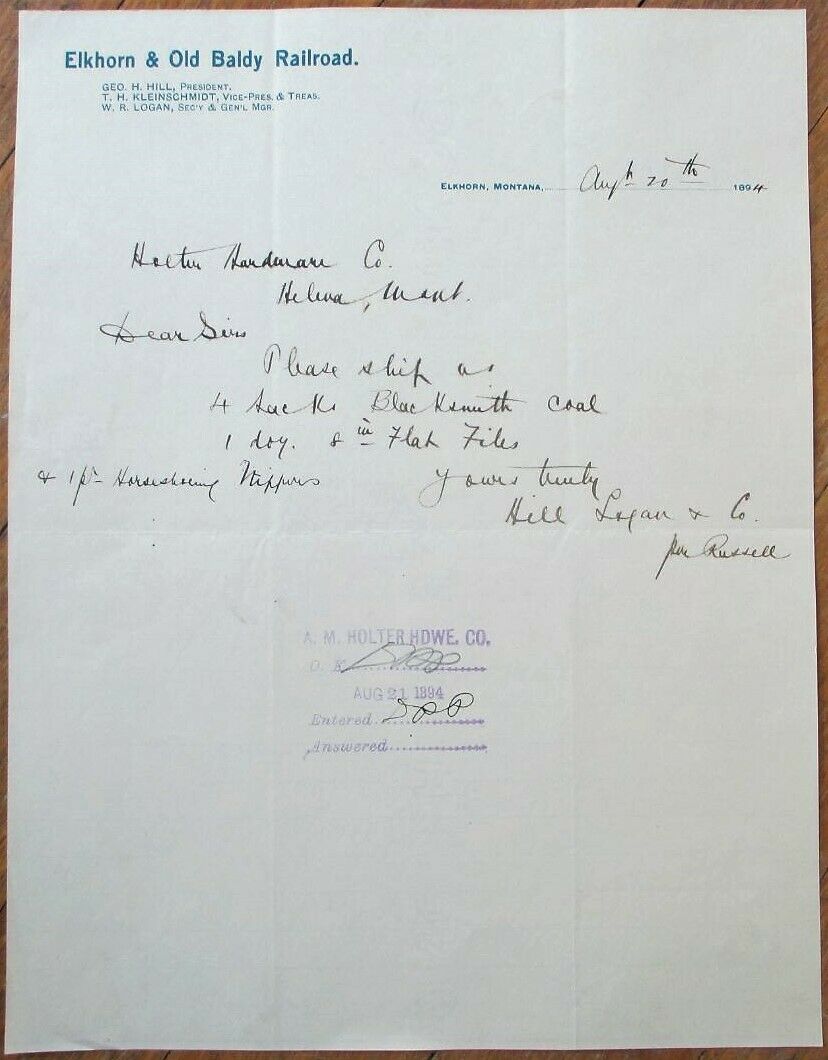 Elkhorn & Old Baldy Railroad.
GEO. H. HILL, PRESIDENT.
T. H. KLEINSCHMIDT, VICE-PRES. & TREAS.
W. R. LOGAN, SEC'Y & GEN'L MGR.
ELKHORN, MONTANA, 20th 1894
Holter Hardware Co.
Helena, Mont.
Dear Sirs
Please ship us
4 Sacks Blacksmith coal
1 doz. 8 in Flat Files
& 1 pr Horseshoeing Nippers
Yours truly
Hill Logan & Co.
per Russell
A. M. HOLTER HDWE. CO.
O. K.
AUG 21 1894
Entered
Answered